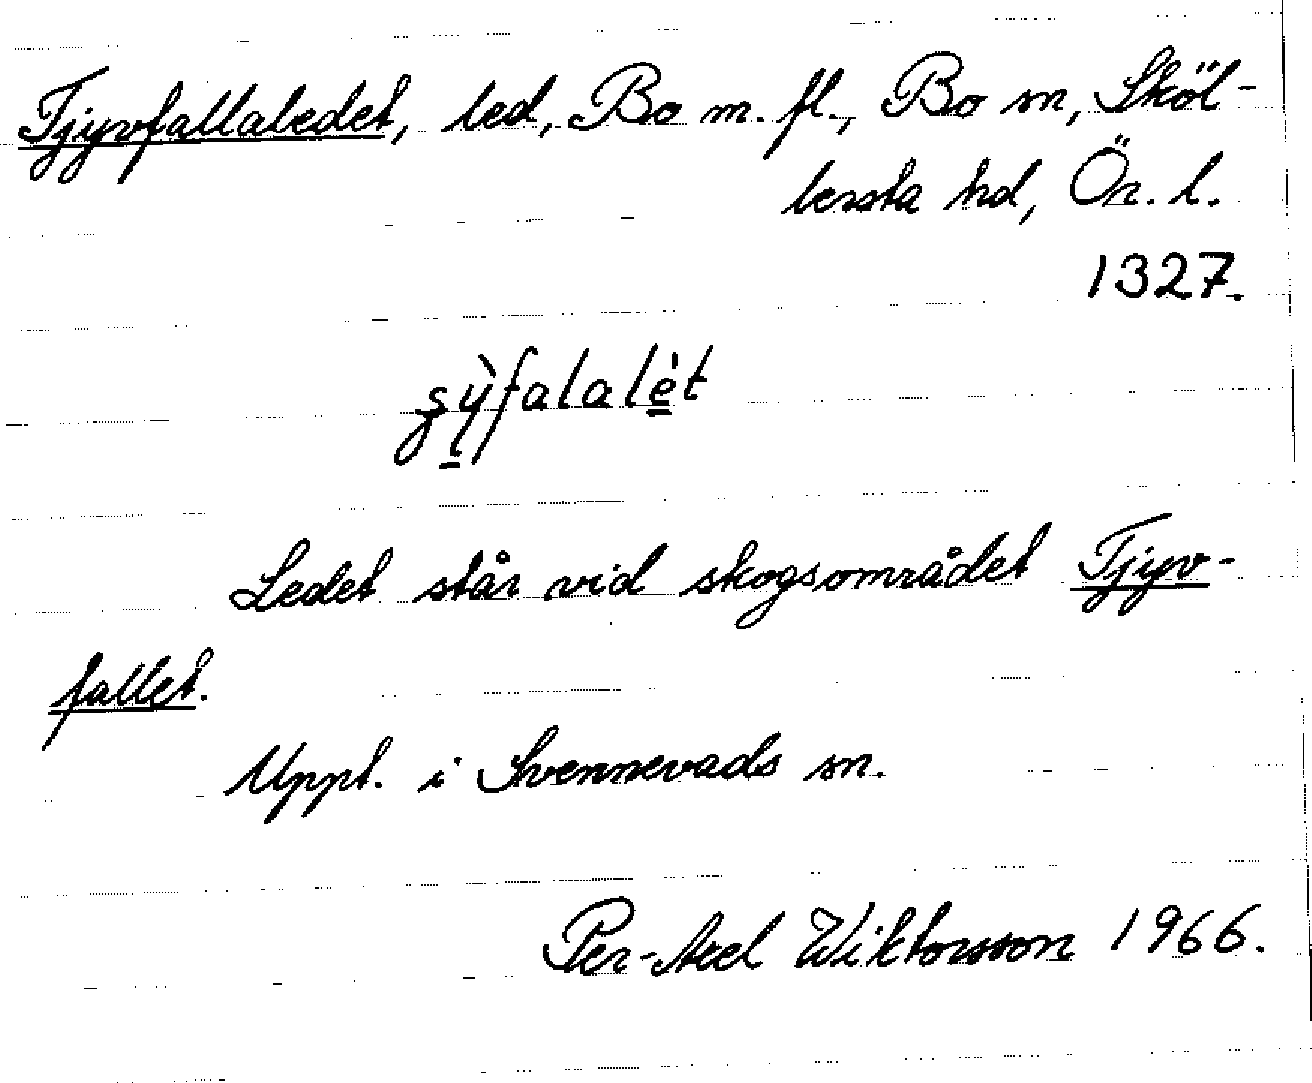 Tjyvfallaledet, led, Bo m. fl., Bo sn, Sköl-
lersta hd, Ör. l.
1327.
Ledet står vid skogsområdet Tjyv-
fallet.
Uppt. i Svennevads sn.
Per-Axel Wiktorsson 1966.